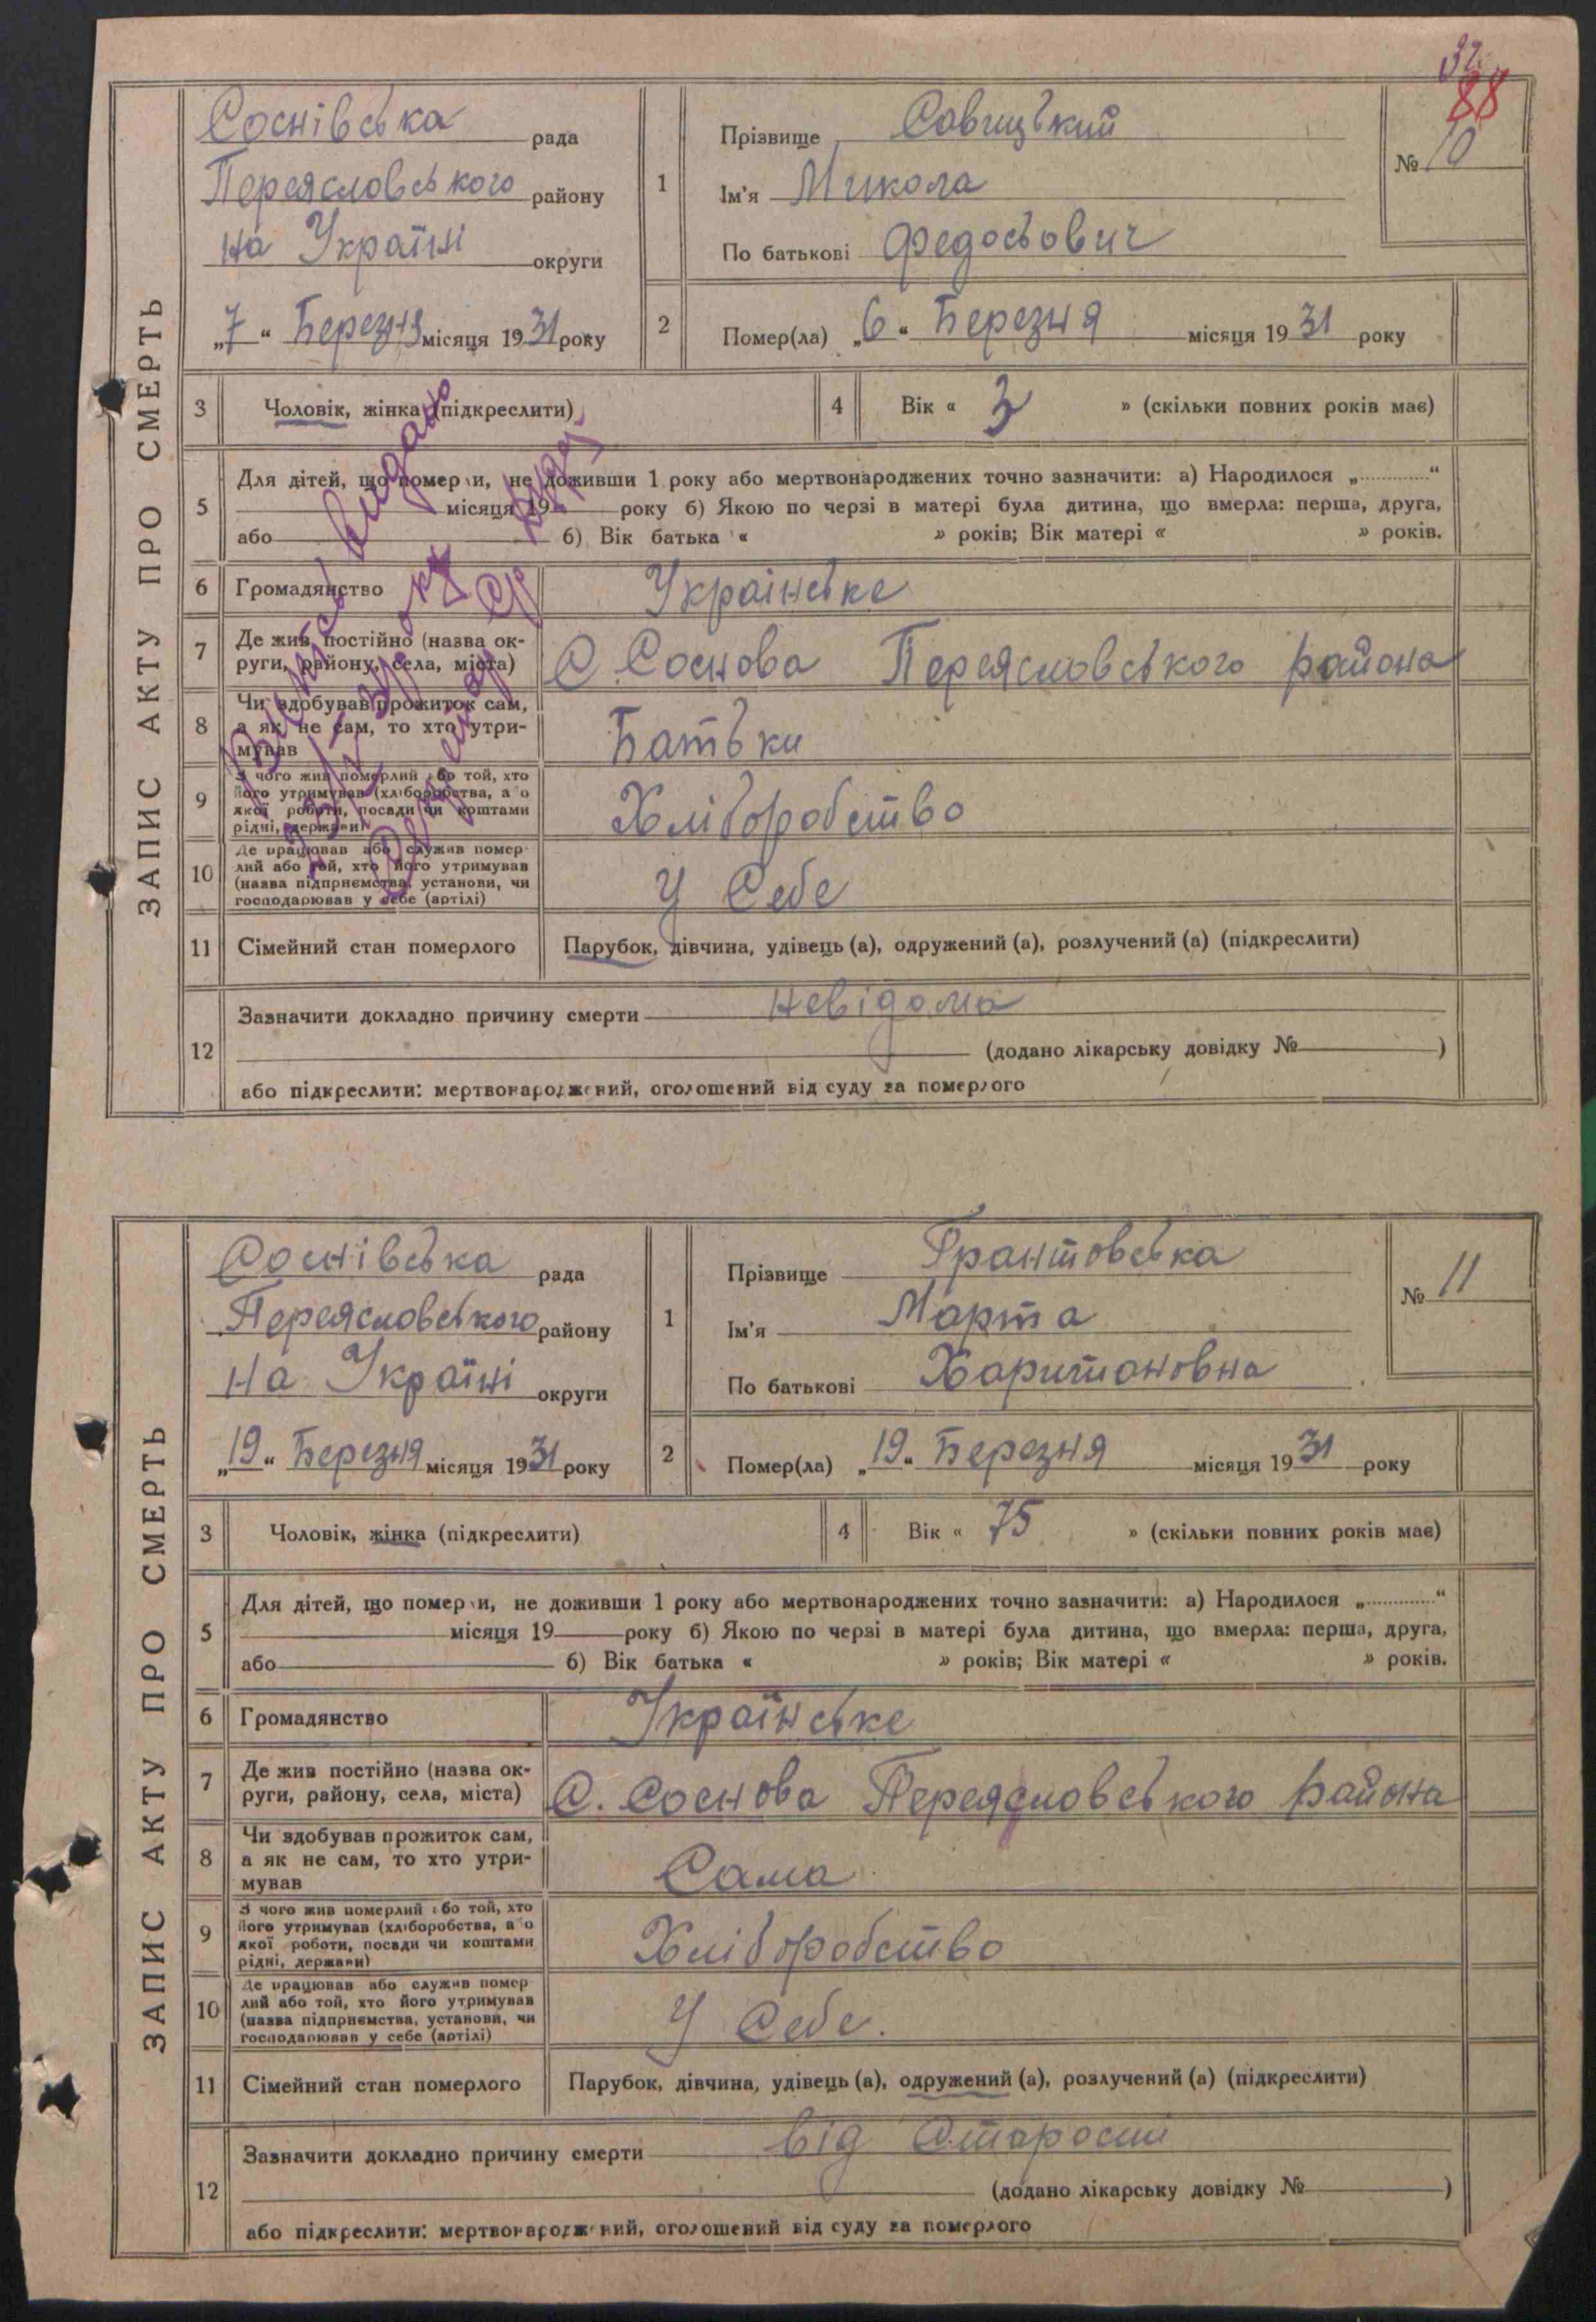 32
88
ЗАПИС АКТУ ПРО СМЕРТЬ
Соснівська рада
Переясловського району
на Україні округи
„7“ Березня місяця 1931 року
1
Прізвище Савицький
Ім'я Микола
По батькові Федосьович
№ 10
2
Помер(ла) „6“ Березня місяця 1931 року
3
Чоловік, жінка (підкреслити)
4
Вік « 3 » (скільки повних років має)
5
Для дітей, що померли, не доживши 1 року або мертвонароджених точно зазначити: а) Народилося „ “
місяця 19 року б) Якою по черзі в матері була дитина, що вмерла: перша, друга,
або б) Вік батька « » років; Вік матері « » років.
6
Громадянство Українське
7
Де жив постійно (назва ок-
руги, району, села, міста)
С. Соснова Переясловського района
8
Чи здобував прожиток сам,
а як не сам, то хто утри-
мував
Батьки
9
З чого жив померлий або той, хто
його утримував (хліборобства, або
якої роботи, посади чи коштами
рідні, держави)
Хліборобство
10
Де працював або служив помер-
лий або той, хто його утримував
(назва підприємства, установи, чи
господарював у себе (артілі)
У Себе
11
Сімейний стан померлого
Парубок, дівчина, удівець (а), одружений (а), розлучений (а) (підкреслити)
12
Зазначити докладно причину смерти невідома
(додано лікарську довідку № )
або підкреслити: мертвонароджений, оголошений від суду за померлого
ЗАПИС АКТУ ПРО СМЕРТЬ
Соснівська рада
Переясловського району
на Україні округи
„19“ Березня місяця 1931 року
1
Прізвище Грантовська
Ім'я Марта
По батькові Харитоновна
№ 11
2
Помер(ла) „19“ Березня місяця 1931 року
3
Чоловік, жінка (підкреслити)
4
Вік « 75 » (скільки повних років має)
5
Для дітей, що померли, не доживши 1 року або мертвонароджених точно зазначити: а) Народилося „ “
місяця 19 року б) Якою по черзі в матері була дитина, що вмерла: перша, друга,
або б) Вік батька « » років; Вік матері « » років.
6
Громадянство Українське
7
Де жив постійно (назва ок-
руги, району, села, міста)
С. Соснова Переясловського района
8
Чи здобував прожиток сам,
а як не сам, то хто утри-
мував
Сама
9
З чого жив померлий або той, хто
його утримував (хліборобства, або
якої роботи, посади чи коштами
рідні, держави)
Хліборобство
10
Де працював або служив помер-
лий або той, хто його утримував
(назва підприємства, установи, чи
господарював у себе (артілі)
У Себе.
11
Сімейний стан померлого
Парубок, дівчина, удівець (а), одружений (а), розлучений (а) (підкреслити)
12
Зазначити докладно причину смерти від Старости
(додано лікарську довідку № )
або підкреслити: мертвонароджений, оголошений від суду за померлого